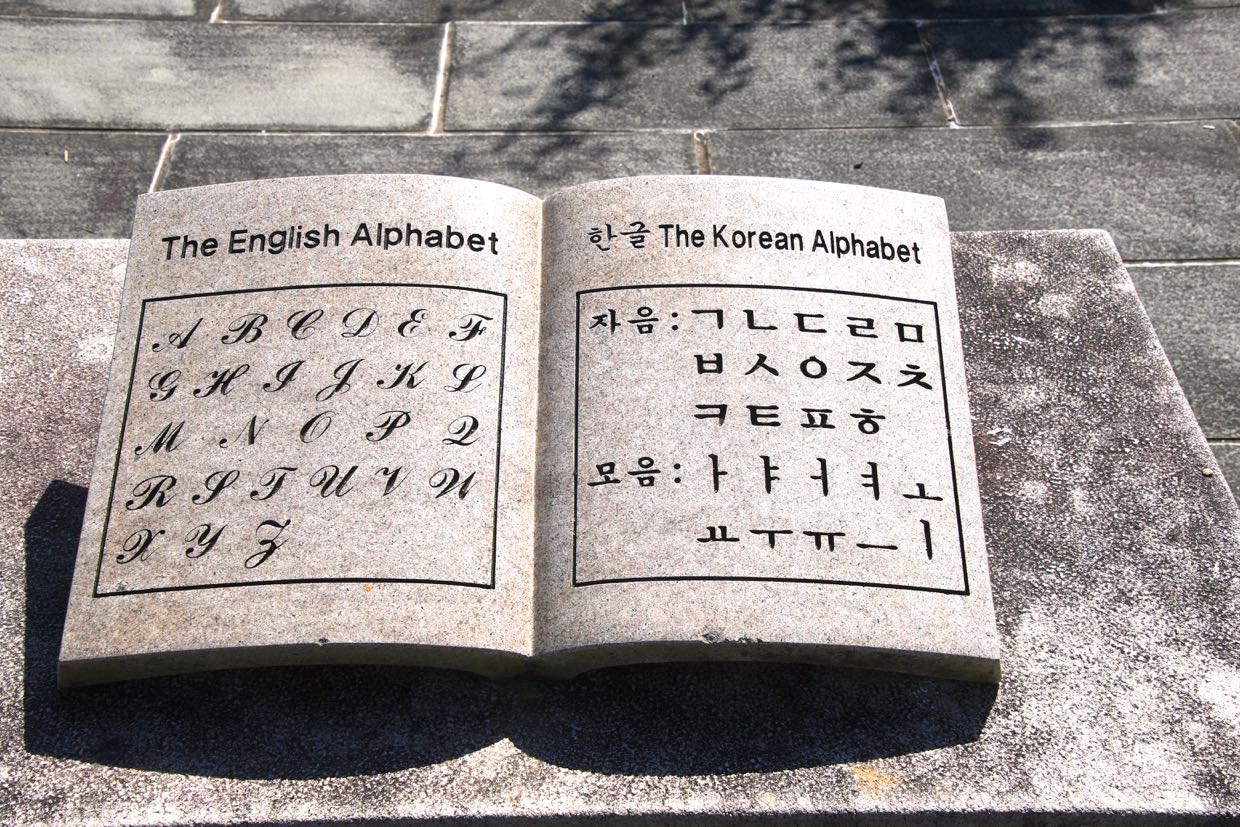 The English Alphabet
A B C D E F
G H I J K L
M N O P Q
R S T U V W
X Y Z
한글 The Korean Alphabet
자음: ㄱ ㄴ ㄷ ㄹ ㅁ
ㅂ ㅅ ㅇ ㅈ ㅊ
ㅋ ㅌ ㅍ ㅎ
모음: ㅏ ㅑ ㅓ ㅕ ㅗ
ㅛ ㅜ ㅠ ㅡ ㅣ